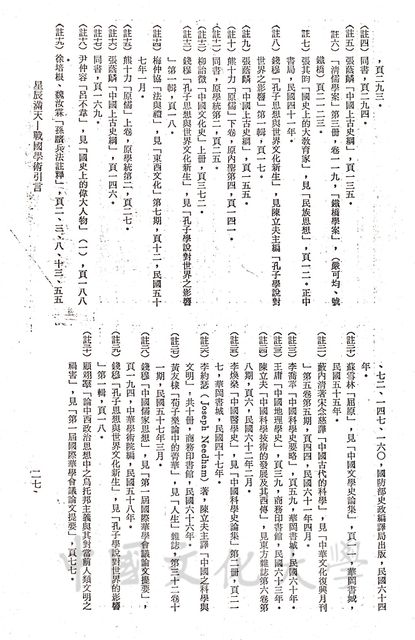 ，頁二九三。
（註四）同書，頁二九四。
（註五）張蔭麟「中國上古史綱」，頁一三五。
（註六）「清儒學案」第三冊，卷一一九，「鐵橋學案」，（嚴可均、號
鐵橋）頁二一二三。
（註七）張其昀「國史上的大教育家」，見「民族思想」，頁一二。正中
書局，民國四十一年。
（註八）錢穆「孔子思想與世界文化新生」，見陳立夫主編「孔子學說對
世界之影響」第一輯，頁一七。
（註九）張蔭麟「中國上古史綱」，頁一五五。
（註十）熊十力「原儒」下卷，原內聖第四，頁一四一。
（註十一）同書，原學統第二，頁二五。
（註十二）柳詒徵「中國文化史」上冊，頁三七二。
（註十三）錢穆「孔子思想與世界文化新生」，見「孔子學說對世界之影響
」第一輯，頁一八。
（註十四）梅仲協「法與禮」，見「東西文化」第七期，頁十二，民國五十
七年一月。
（註十五）熊十力「原儒」上卷，原學統第二，頁二七。
（註十六）張蔭麟「中國上古史綱」，頁一四六。
（註十七）同書，頁一六九。
（註十八）尹仲容「呂不韋」，見「國史上的偉大人物」（一），頁一八八
（註十九）徐培根、魏汝霖「孫臏兵法註釋」，頁二、三、八、十三、五五
星辰滿天—戰國學術引言
二一七
、七二、一四七、一六〇，國防部史政編譯局出版，民國六十四
年。
（註二十）蘇雪林「屈原」，見「中國文學史論集」（一），華岡書城，
民國五十五年。
藪內清著宋念慈譯「中國古代的科學」，見「中華文化復興月刊
」第五卷第五期，頁四四，民國六十一年四月。
李喬苹「中國科學史要略」，頁五九，華岡書城，民國六十年。
王庸「中國地理學史」，頁三九，商務印書館，民國六十三年。
陳立夫「中國科學技術的發展及其西傳」，見東方雜誌第六卷第
八期，頁六，民國六十二年二月。
李煥燊「中國醫學史」，見「中國科學史論集」第二冊，頁二一
七，華岡書城，民國四十七年。
李約瑟（Joseph Needham）著，陳立夫主譯「中國之科學與
文明」，共十冊，商務印書館，民國六十六年。
黃友棣「荀子樂論中的菁華」，見「人生」雜誌，第三十二卷十
一期，民國五十七年三月。
錢穆「中國儒家思想」，見「第一屆國際華學會議論文提要」，
頁一九四，中華學術院編，民國五十八年。
錢穆「孔子思想與世界文化新生」，見「孔子學說對世界的影響
」第一輯，頁一八。
顧翊羣「論中西政治思想中之烏托邦主義與其對當前人類文明之
禍害」，見「第一屆國際華學會議論文提要」，頁七七。
中國文化大學